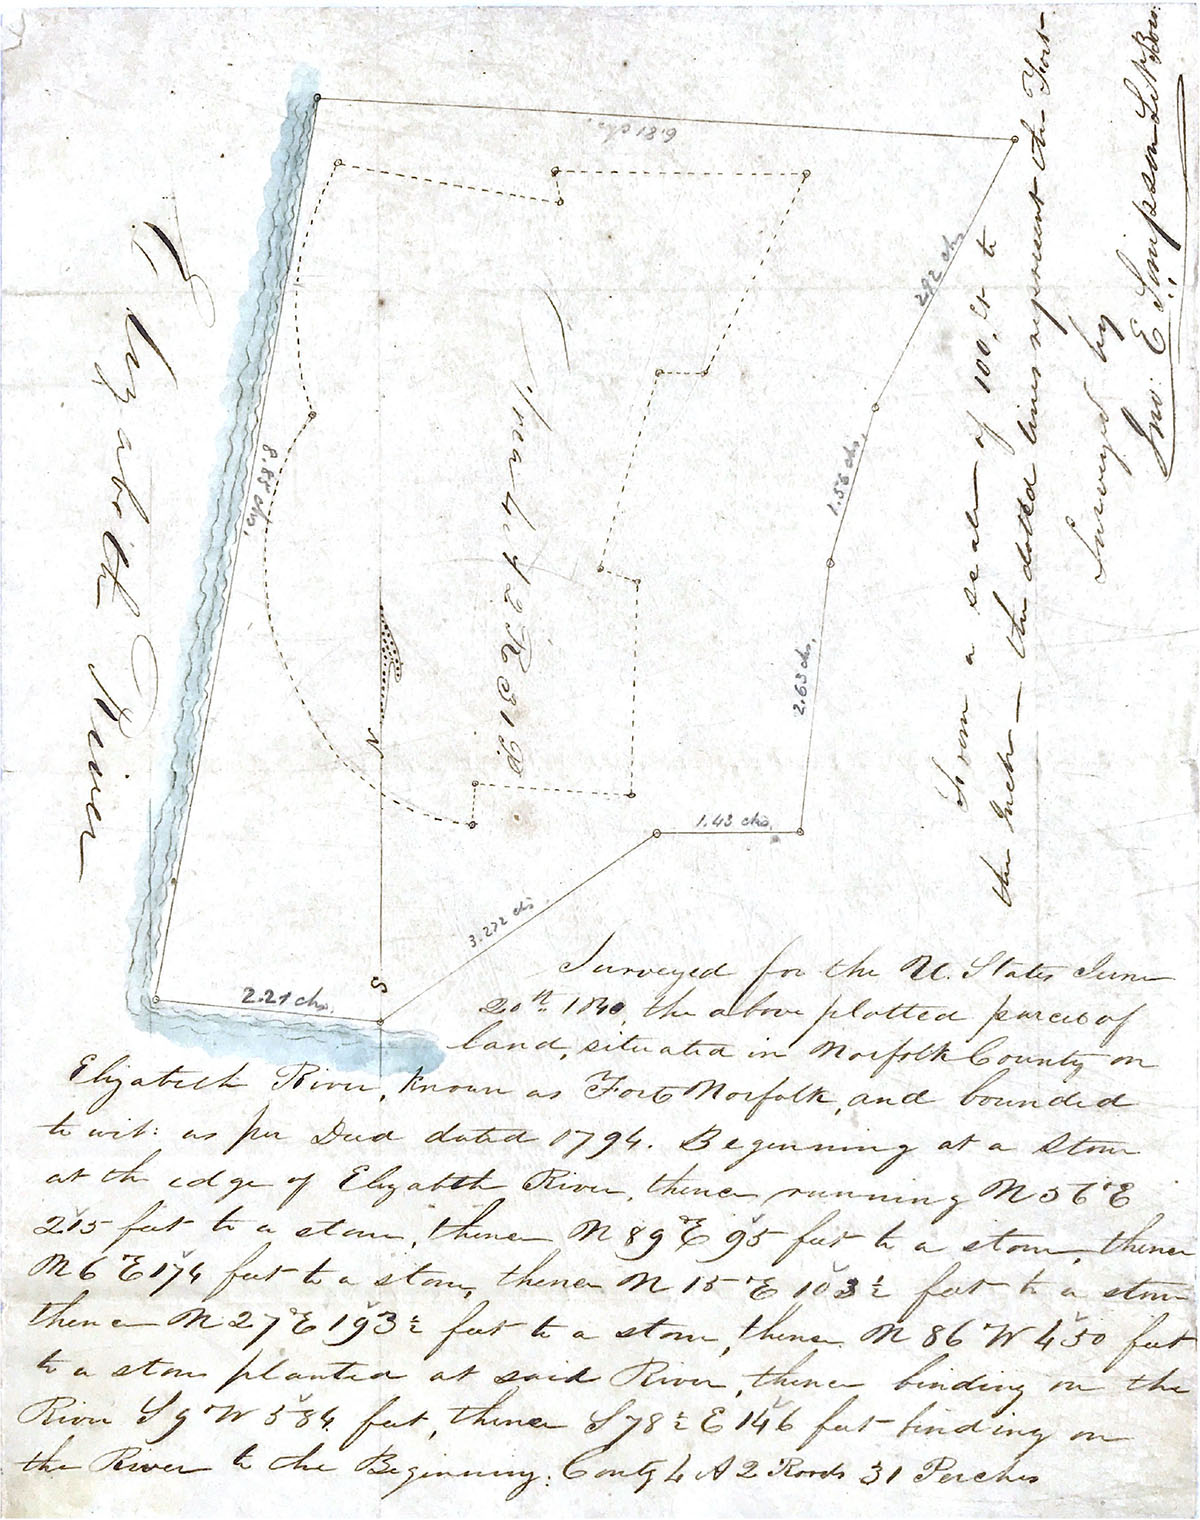 6.81 chs.
2.92 chs.
1.56 chs.
2.63 chs.
1.43 chs.
3.272 chs.
2.21 chs.
8.85 chs.
N
S
Elizabeth River
Area 4 A 2 R 31 P
From a scale of 100 ft to
the Inch — the dotted lines represent the Fort
Surveyed by
Jno: E Simpson
Surveyed for the U. States June
20th 1840, the above plotted parcel of
land, situated in Norfolk County on
Elizabeth River, known as Fort Norfolk, and bounded
to wit: as per Deed dated 1794. Beginning at a Stone
at the edge of Elizabeth River, thence running N 56° E
215 feet to a stone, thence N 89 E 95 feet to a stone, thence
N 6 E 174 feet to a stone, thence N 15° E 103½ feet to a stone
thence N 27 E 193½ feet to a stone, thence N 86 W 450 feet
to a stone planted at said River, thence binding on the
River S 9 W 584 feet, thence S 78½ E 146 feet binding on
the River to the Beginning: Contg 4 A 2 Roods 31 Perches